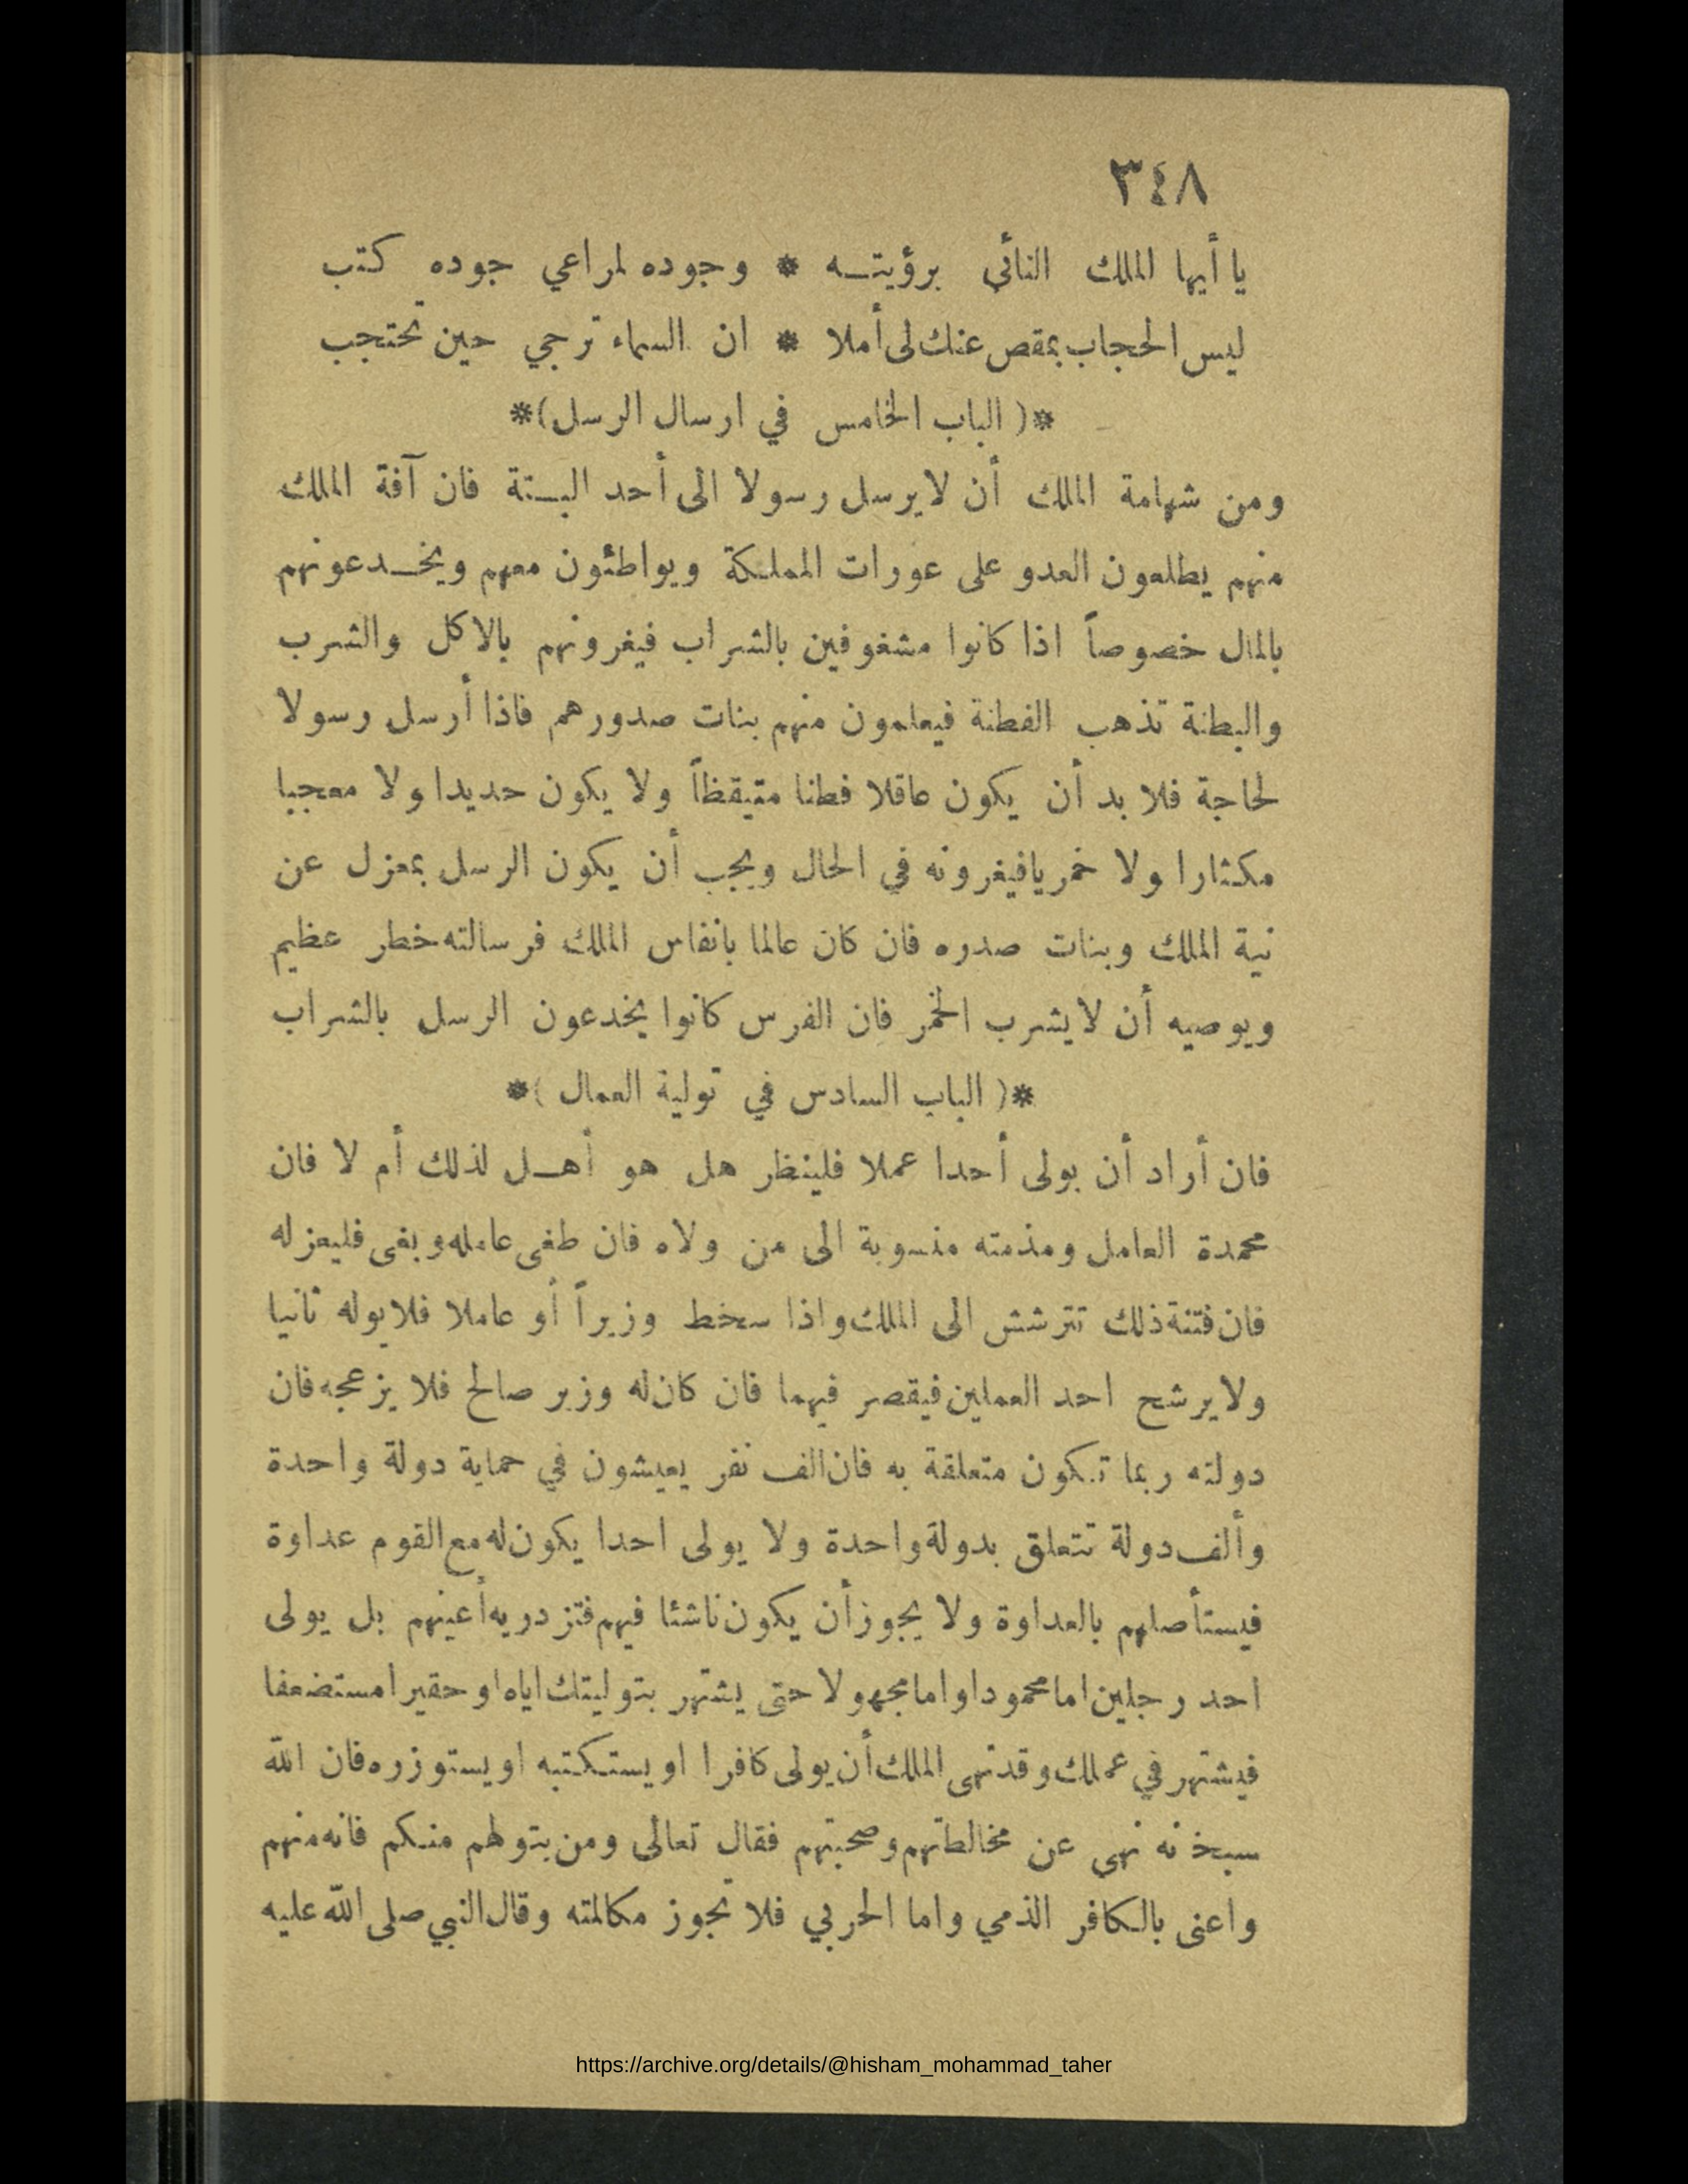 ٣٤٨
يا أيها الملك النائي برؤيتـه * وجوده لمراعي جوده كتب
ليس الحجاب بمقص عنك لى أملا * ان السماء ترجي حين تحتجب
*( الباب الخامس في ارسال الرسل)*
ومن شهامة الملك أن لا يرسل رسولا الى أحد البـتة فان آفة الملك
منهم يطلعون العدو على عورات المملكة ويواطئون معهم ويخـدعونهم
بالمال خصوصاً اذا كانوا مشغوفين بالشراب فيغرونهم بالاكل والشرب
والبطنة تذهب الفطنة فيعلمون منهم بنات صدورهم فاذا أرسل رسولا
لحاجة فلا بد أن يكون عاقلا فطنا متيقظاً ولا يكون حديدا ولا معجبا
مكثارا ولا خمريا فيغرونه في الحال ويجب أن يكون الرسل بمعزل عن
نية الملك وبنات صدره فان كان عالما بانفاس الملك فرسالته خطر عظيم
ويوصيه أن لا يشرب الخمر فان الفرس كانوا يخدعون الرسل بالشراب
*( الباب السادس في تولية العمال )*
فان أراد أن يولى أحدا عملا فلينظر هل هو أهـل لذلك أم لا فان
محمدة العامل ومذمته منسوبة الى من ولاه فان طغى عامله وبغى فليعزله
فان فتنة ذلك تترشش الى الملك واذا سخط وزيراً أو عاملا فلا يوله ثانيا
ولا يرشح احد العملين فيقصر فيهما فان كان له وزير صالح فلا يزعجه فان
دولته ربما تكون متعلقة به فان الف نفر يعيشون في حماية دولة واحدة
وألف دولة تتعلق بدولة واحدة ولا يولى احدا يكون له مع القوم عداوة
فيستأصلهم بالعداوة ولا يجوز أن يكون ناشئا فيهم فتزدريه أعينهم بل يولى
احد رجلين اما محمودا او اما مجهولا حتى يشتهر بتوليتك اياه او حقيرا مستضعفا
فيشتهر في عملك وقد نهى الملك أن يولى كافرا او يستكتبه او يستوزره فان الله
سبحانه نهى عن مخالطتهم وصحبتهم فقال تعالى ومن يتولهم منكم فانه منهم
واعنى بالكافر الذمي واما الحربي فلا تجوز مكالمته وقال النبي صلى الله عليه
https://archive.org/details/@hisham_mohammad_taher